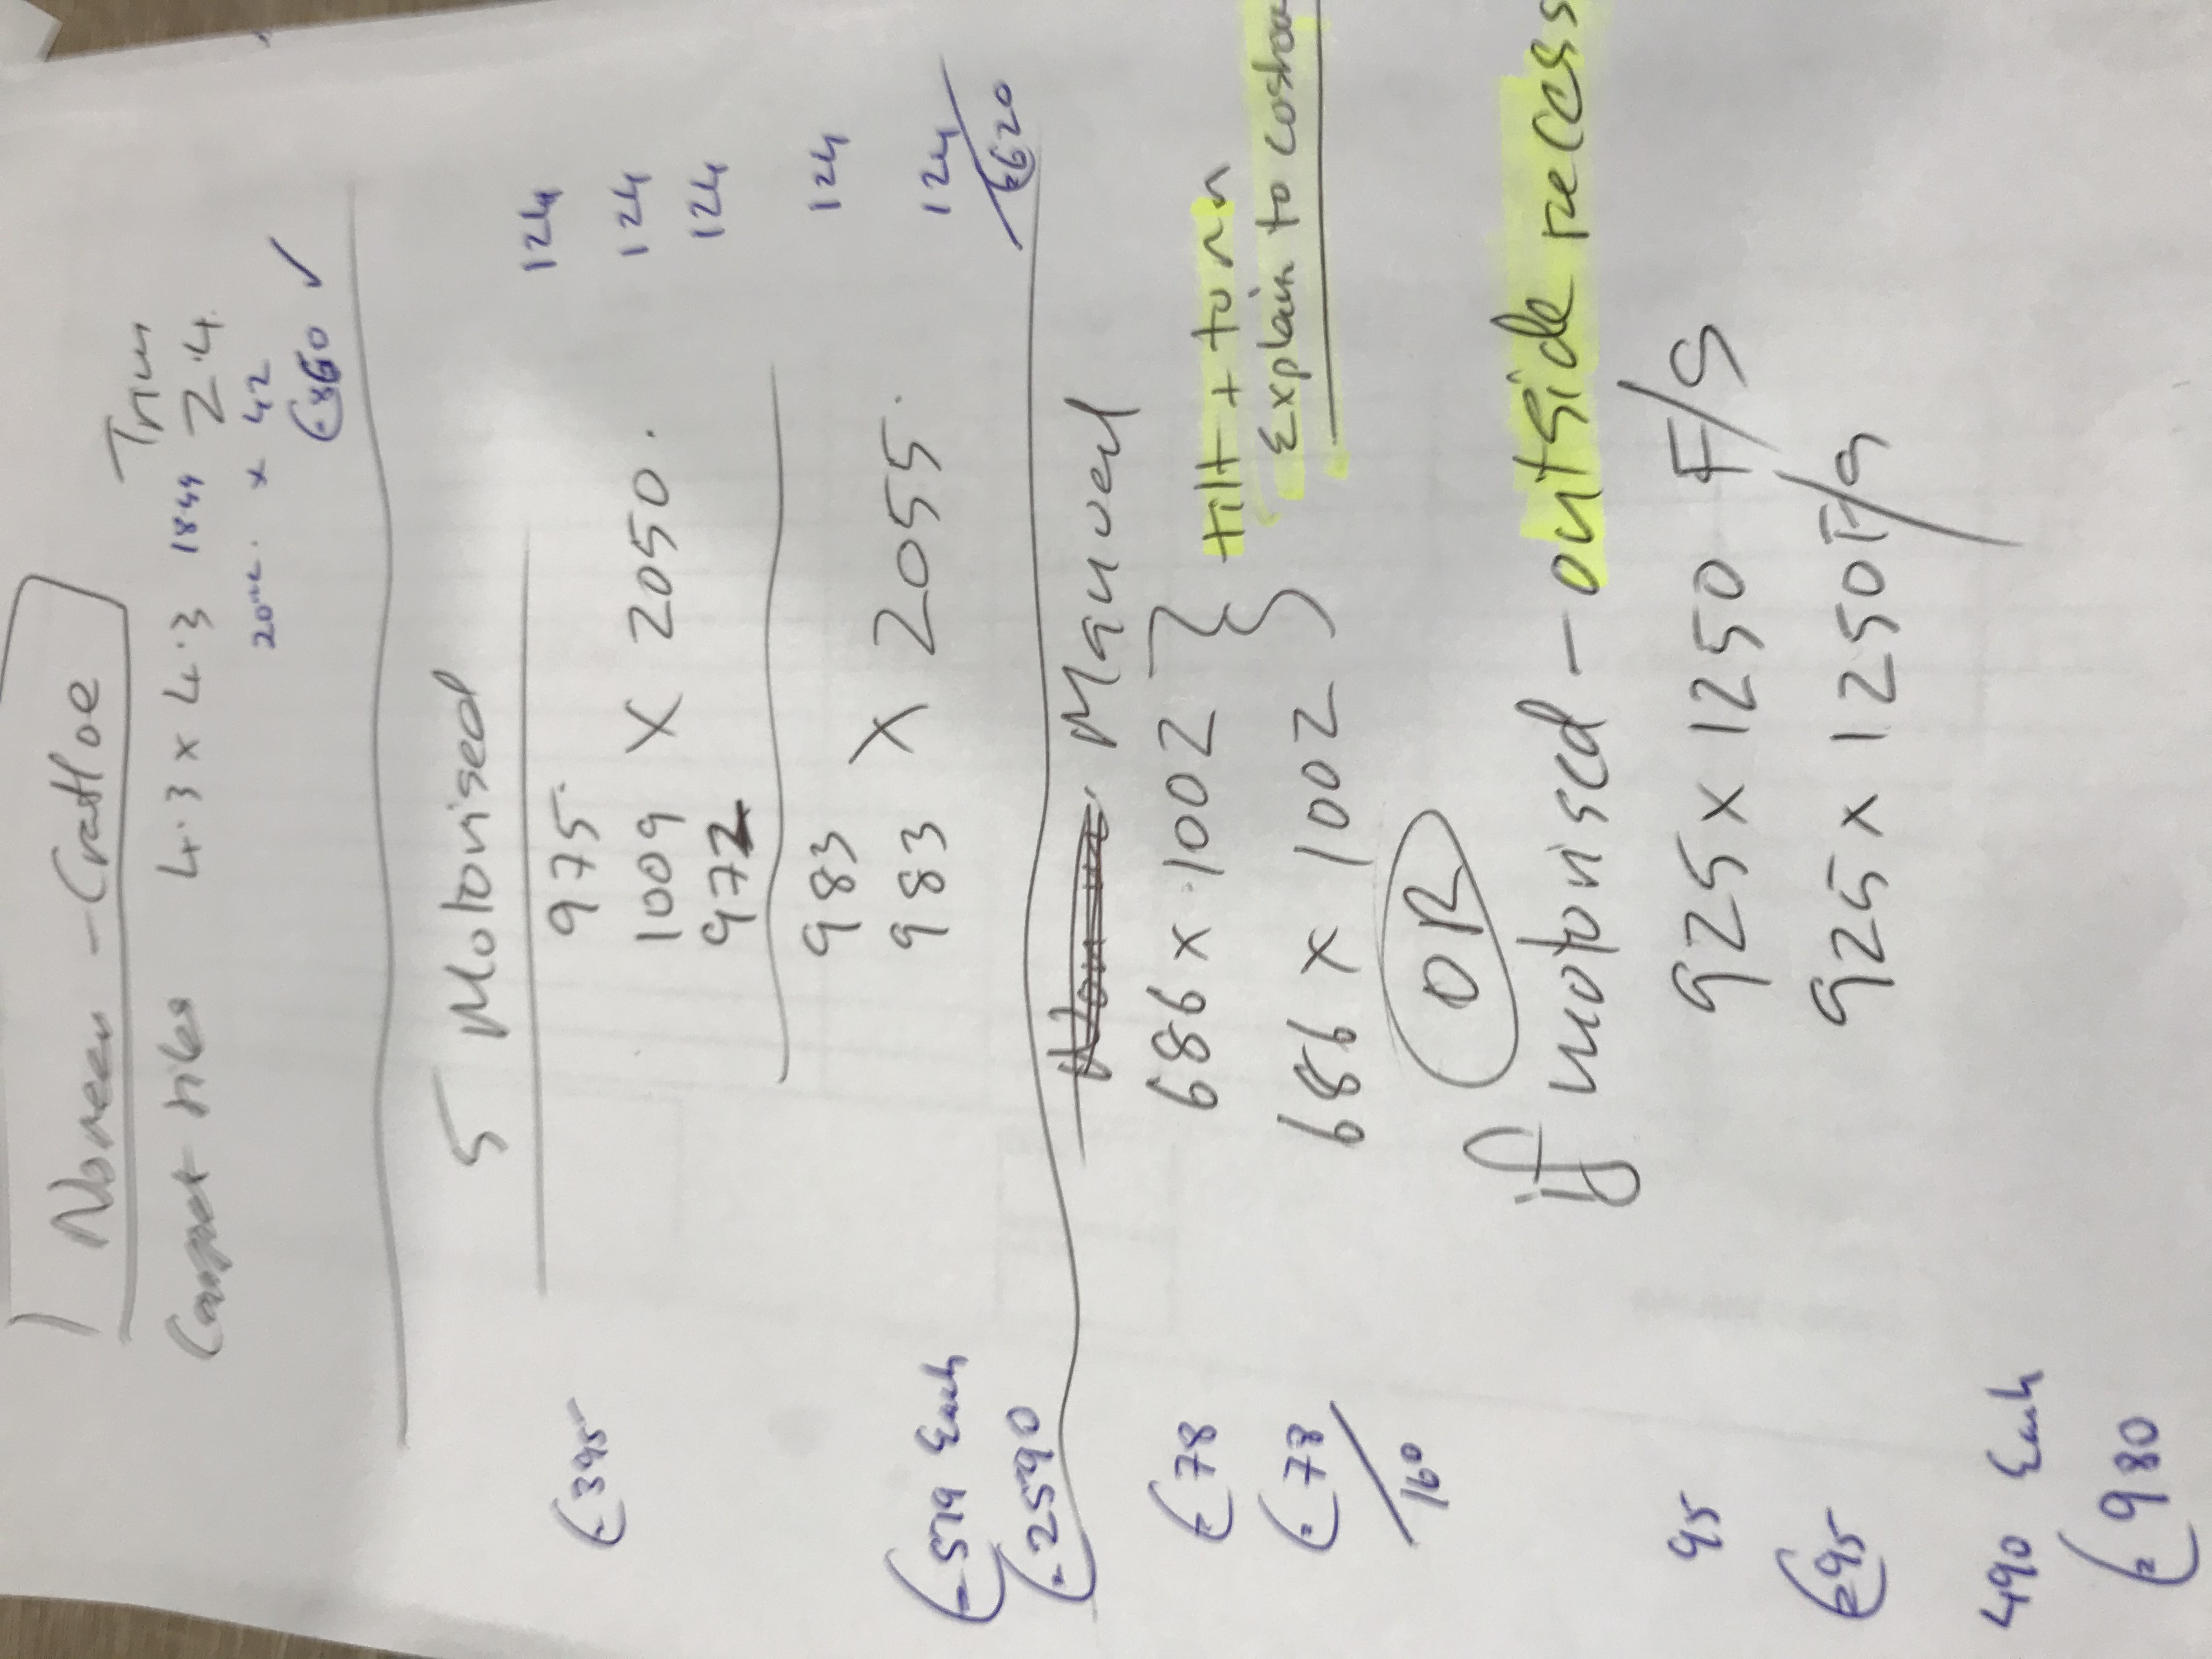 Noreen - Cratloe
Trim
Carpet tiles 4.3 x 4.3 18.49 24
20m2. x 42
€860 ✓
5 Motorised
975. 124
€395 1009 X 2050. 124
972 124
983 124
983 X 2055. 124
€519 Each €620
€2590
Manuel
€78 686 x 1002 } tilt + torn
€78 686 x 1002 } Explain to
160
OR
if motorised - outside recess
95 925 x 1250 F/G
€95 925 x 1250 F/G
490 Each
€980